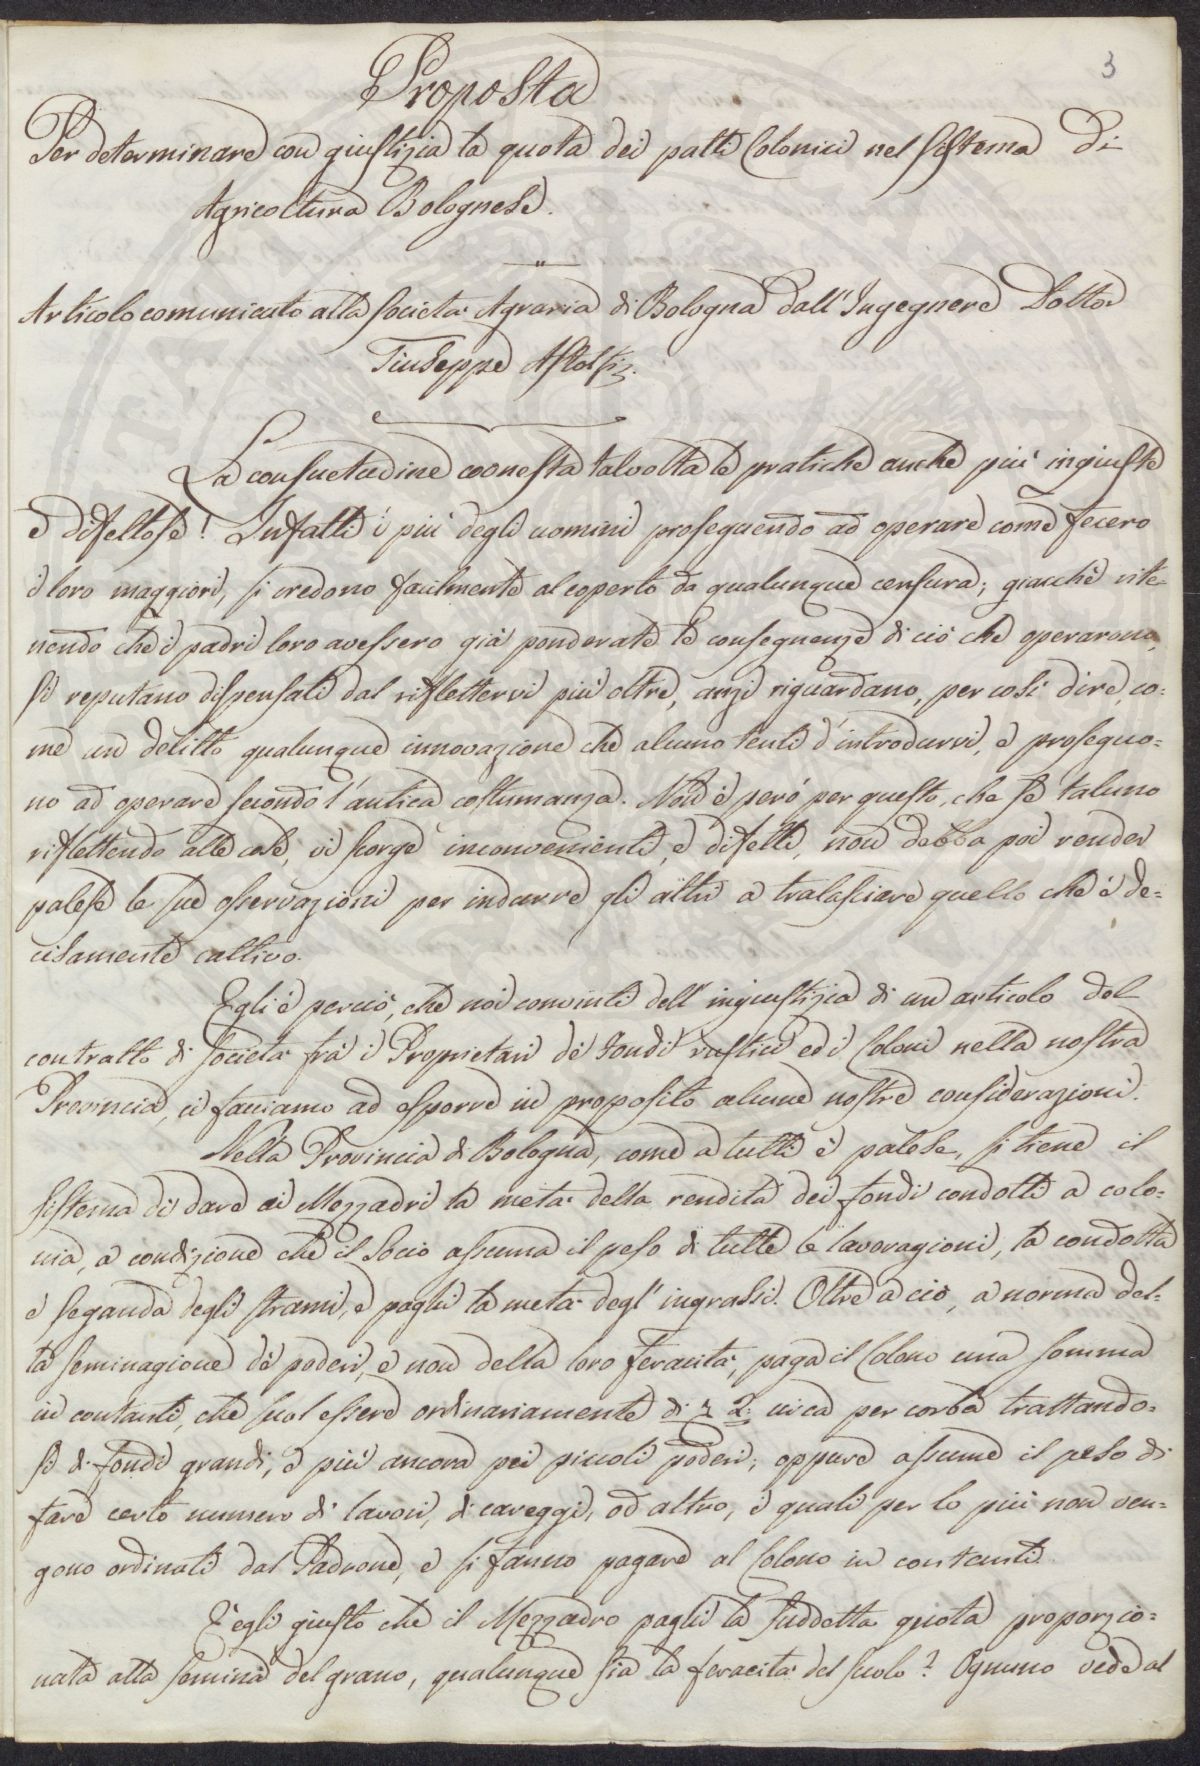 3
Proposta
Per determinare con giustizia la quota dei patti Colonici nel sistema di
Agricoltura Bolognese.
Articolo comunicato alla Società Agraria di Bologna dall'Ingegnere Dottor
Giuseppe Astolfi.
La consuetudine coonesta talvolta le pratiche anche più ingiuste
e difettose! Infatti i più degli uomini proseguendo ad operare come fecero
i loro maggiori, si credono facilmente al coperto da qualunque censura; giacchè rite=
nendo che i padri loro avessero già ponderate le conseguenze di ciò che operarono,
si reputano dispensati dal riflettervi più oltre, anzi riguardano, per così dire, co=
me un delitto qualunque innovazione che alcuno tenti d'introdurvi, e proseguo=
no ad operare secondo l'antica costumanza. Non è però per questo, che se taluno
riflettendo alle cose, vi scorge inconvenienti, e difetti, non debba poi render
palese le sue osservazioni per indurre gli altri a tralasciare quello che è de=
cisamente cattivo.
Egli è perciò, che noi convinti dell'ingiustizia di un articolo del
contratto di società frà i Proprietari de' Fondi rustici ed i Coloni nella nostra
Provincia, ci facciamo ad esporre in proposito alcune nostre considerazioni.
Nella Provincia di Bologna, come a tutti è palese, si tiene il
sistema di dare ai Mezzadri la metà della rendita dei fondi condotti a colo=
nia, a condizione che il Socio assuma il peso di tutte le lavoragioni, la condotta
e seganda degli strami, e paghi la metà degl'ingrassi. Oltre a ciò, a norma del=
la seminagione de' poderi, e non della loro feracità, paga il Colono una somma
in contanti, che suol essere ordinariamente di 2: circa per corba trattando=
si di fondi grandi, e più ancora pei piccoli poderi; oppure assume il peso di
fare certo numero di lavori, di careggi, od altro, i quali per lo più non ven=
gono ordinati dal Padrone, e si fanno pagare al Colono in contanti.
È egli giusto che il Mezzadro paghi la suddetta quota proporzio=
nata alla semina del grano, qualunque sia la feracità del suolo? Ognuno vede al